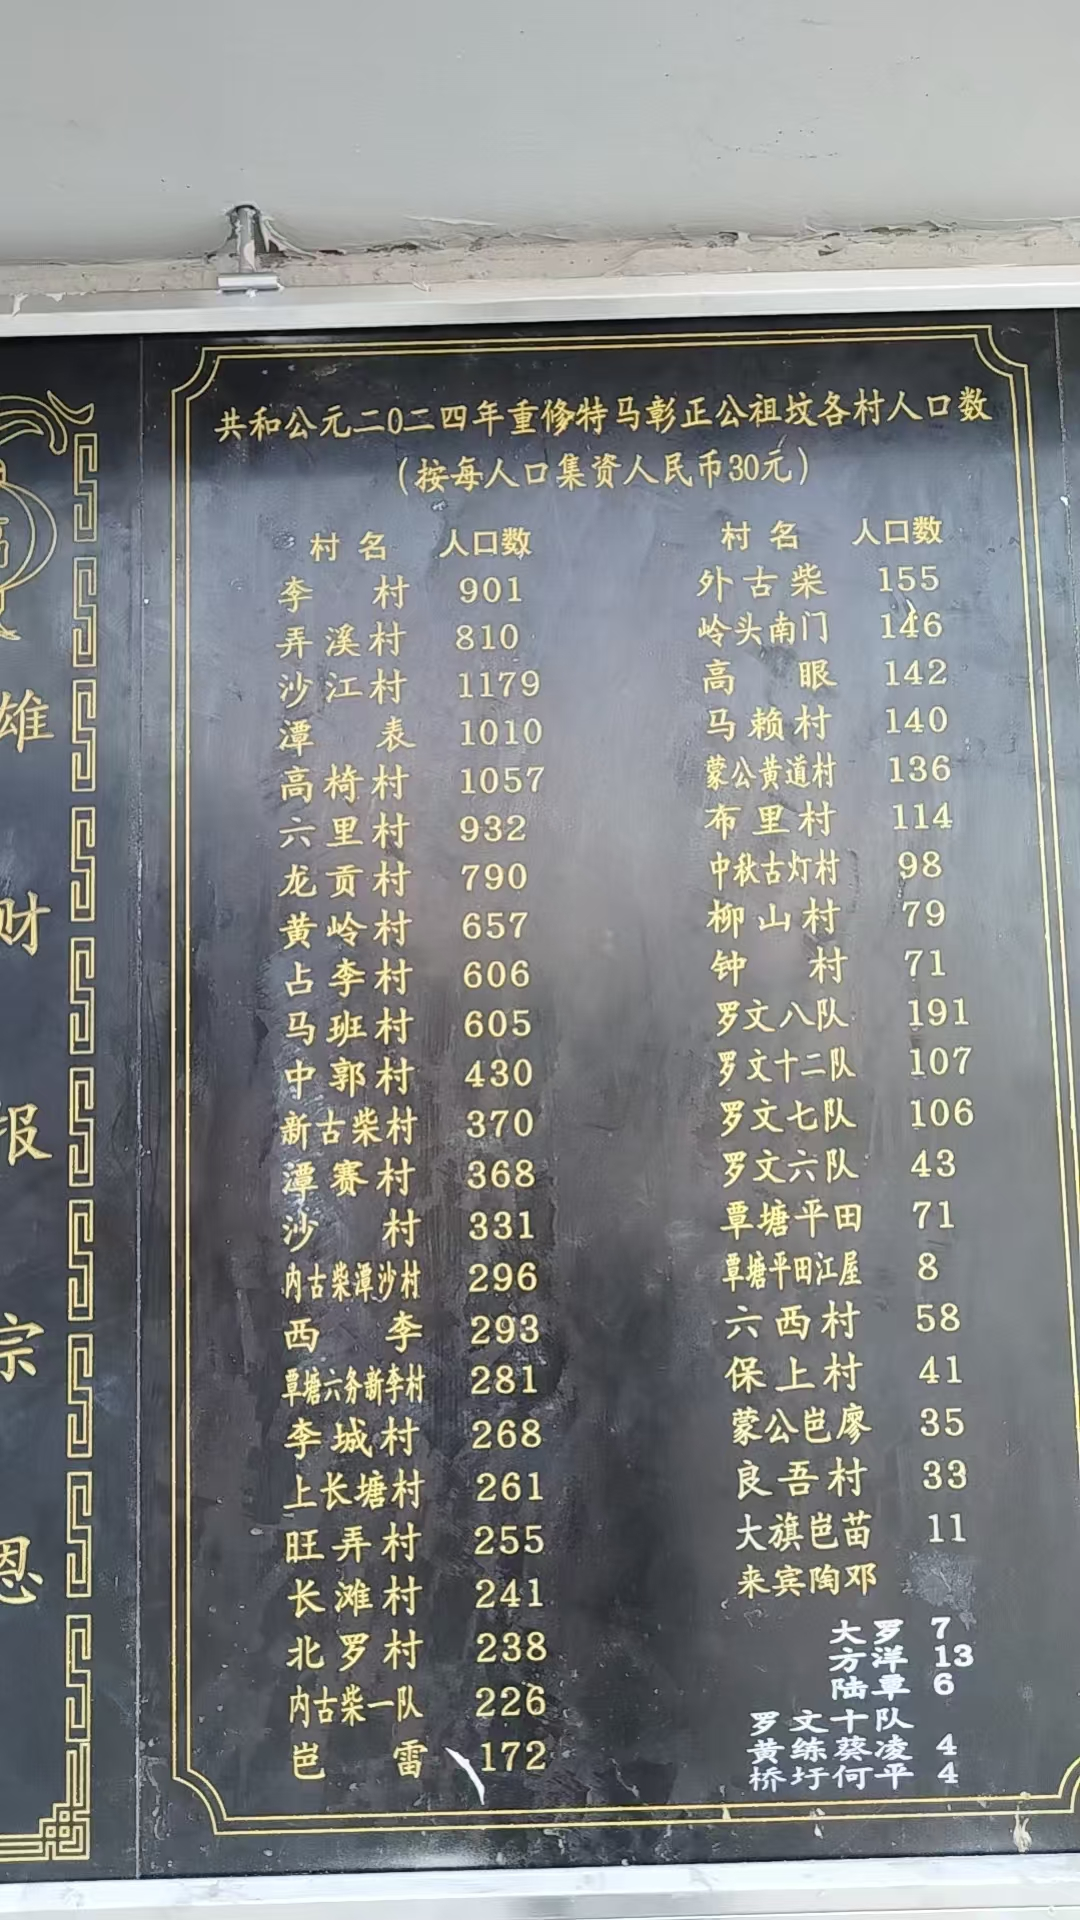 共和公元二0二四年重修特马彰正公祖坟各村人口数
（按每人口集资人民币30元）
村名 人口数
李村 901
弄溪村 810
沙江村 1179
潭表 1010
高椅村 1057
六里村 932
龙贡村 790
黄岭村 657
占李村 606
马班村 605
中郭村 430
新古柴村 370
潭赛村 368
沙村 331
内古柴潭沙村 296
西李 293
覃塘六务新李村 281
李城村 268
上长塘村 261
旺弄村 255
长滩村 241
北罗村 238
内古柴一队 226
岜雷 172
村名 人口数
外古柴 155
岭头南门 146
高眼 142
马赖村 140
蒙公黄道村 136
布里村 114
中秋古灯村 98
柳山村 79
钟村 71
罗文八队 191
罗文十二队 107
罗文七队 106
罗文六队 43
覃塘平田 71
覃塘平田江屋 8
六西村 58
保上村 41
蒙公岜廖 35
良吾村 33
大旗岜苗 11
来宾陶邓
大罗 7
方洋 13
陆覃 6
罗文十队
黄练葵凌 4
桥圩何平 4
雄
财
报
宗
恩